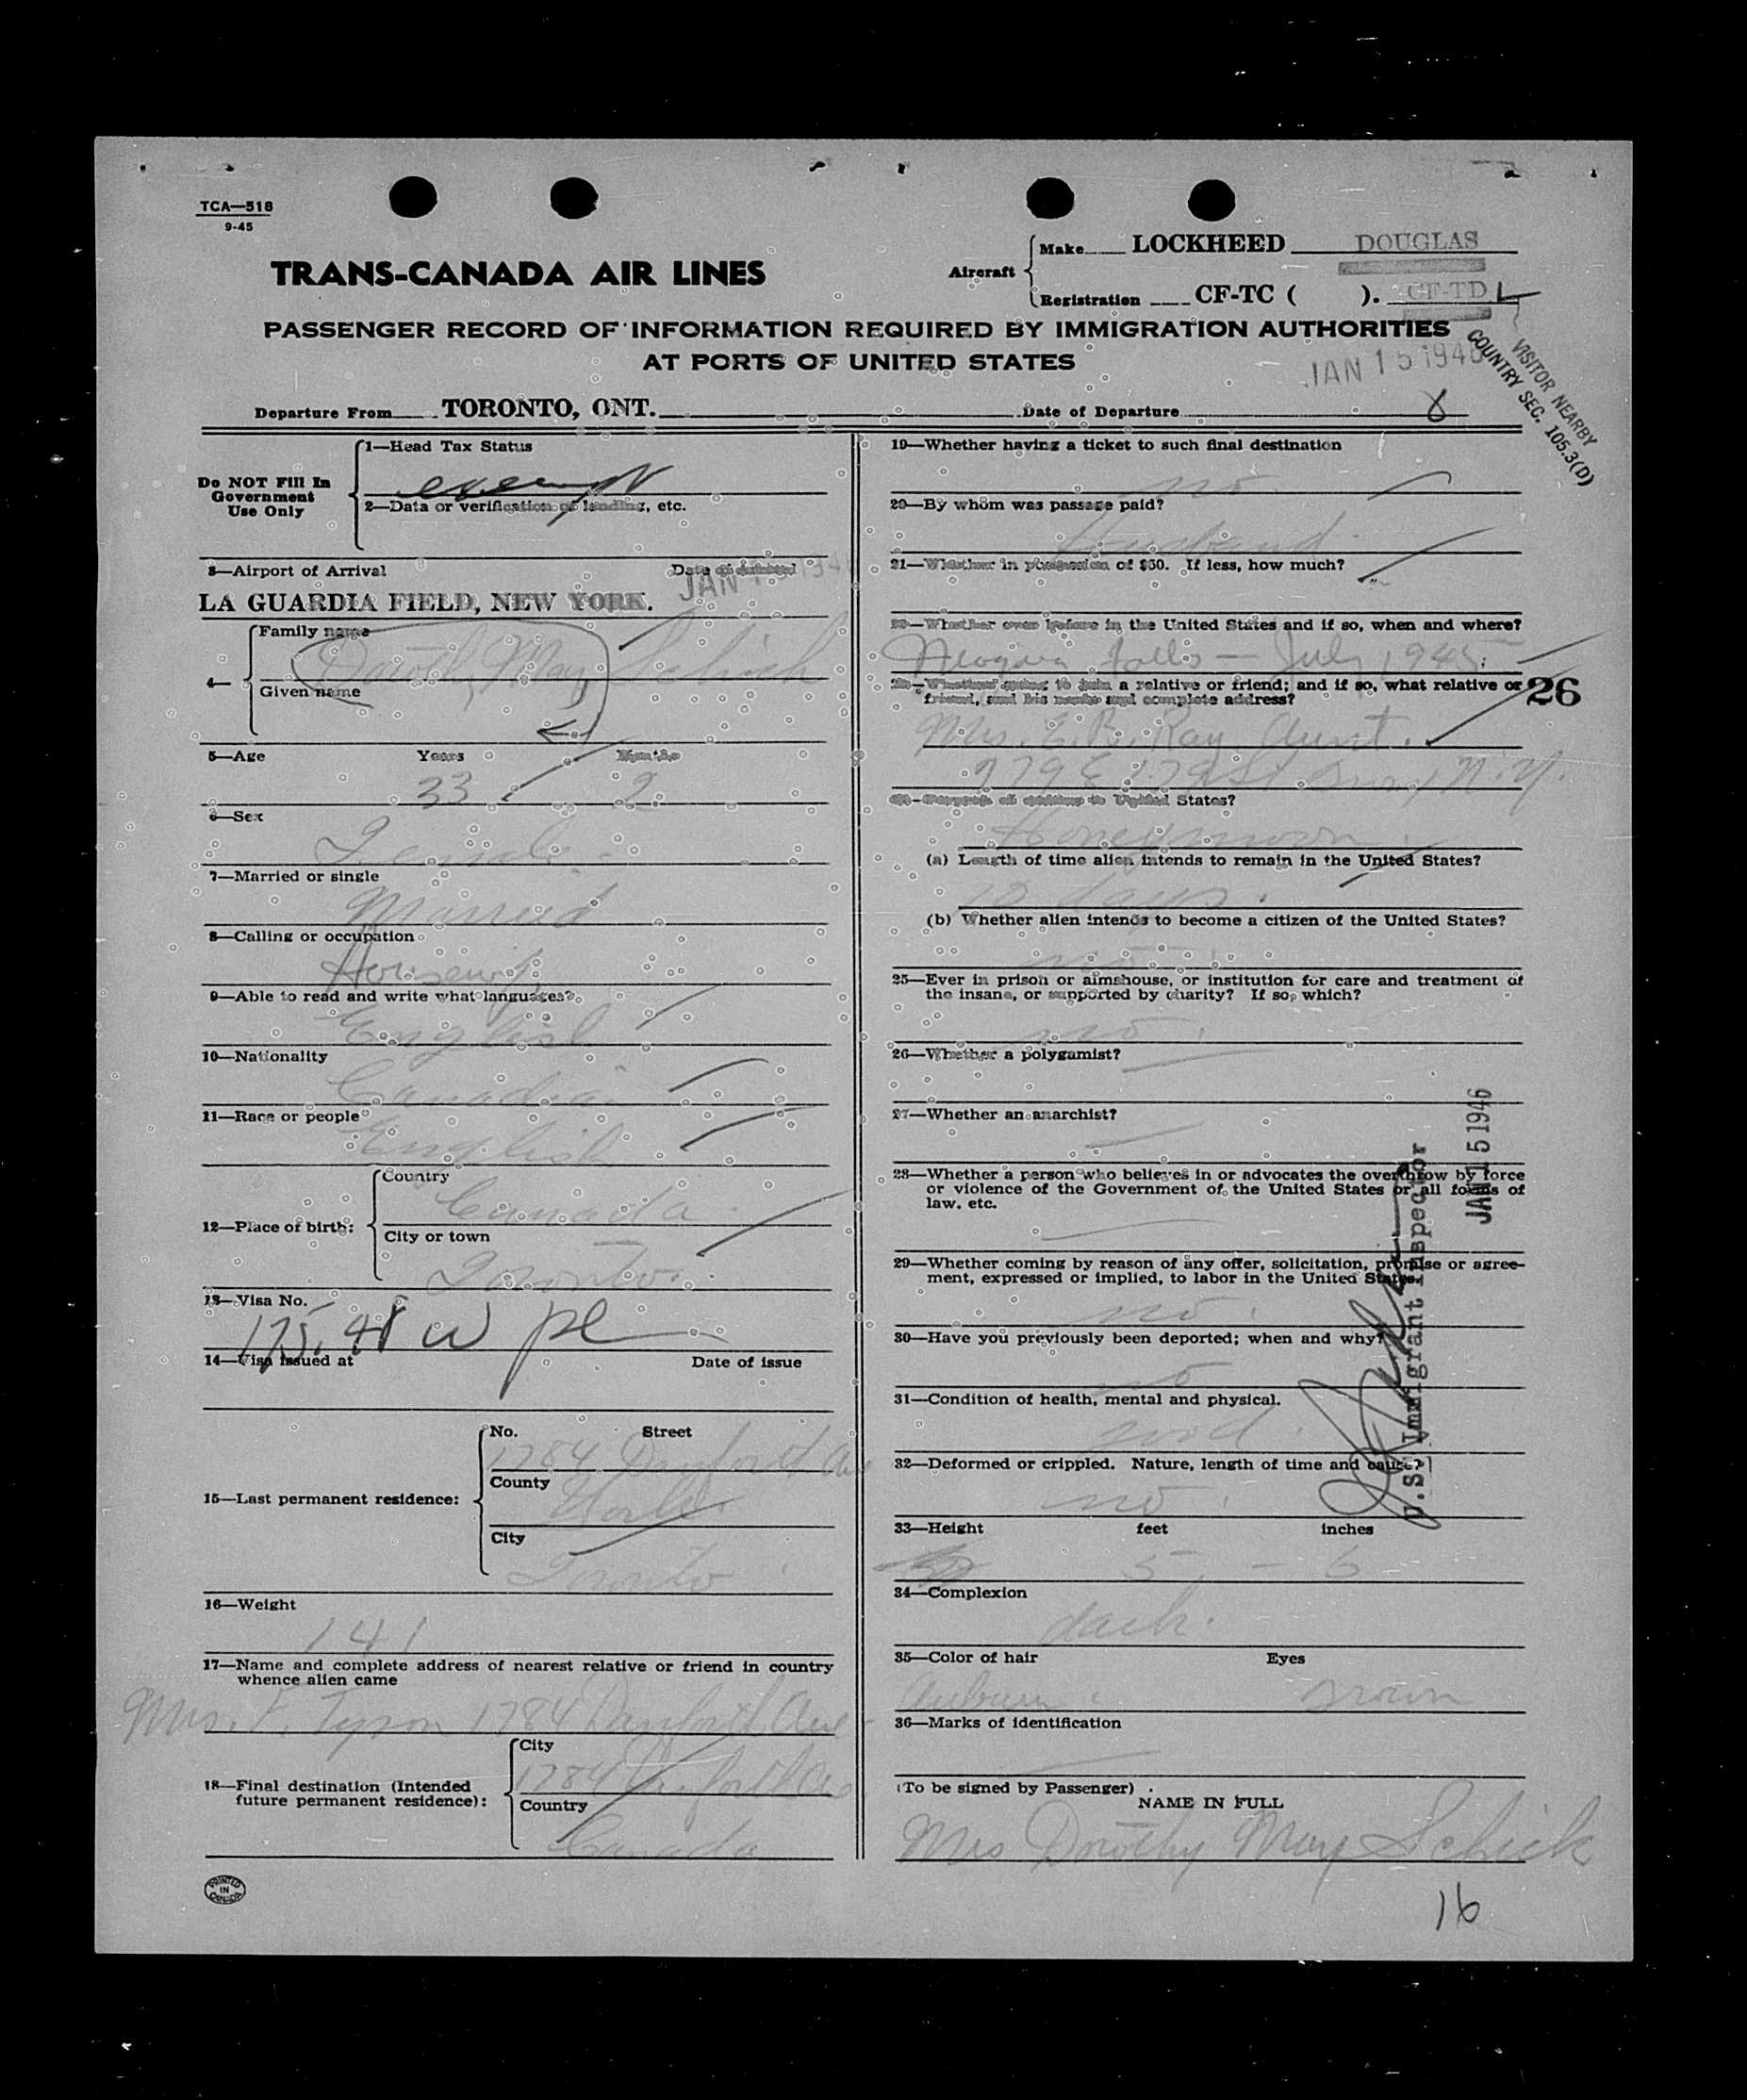 TCA—518
9-45
TRANS-CANADA AIR LINES
Aircraft
Make LOCKHEED DOUGLAS
Registration CF-TC ( ). CF-TD L
PASSENGER RECORD OF INFORMATION REQUIRED BY IMMIGRATION AUTHORITIES
AT PORTS OF UNITED STATES
JAN 15 1946
VISITOR NEARBY
COUNTRY SEC. 105.3(D)
Departure From TORONTO, ONT. Date of Departure 8
Do NOT Fill In
Government
Use Only
1—Head Tax Status
exempt
2—Data or verification of landing, etc.
3—Airport of Arrival Date of
JAN 194
LA GUARDIA FIELD, NEW YORK.
4—
Family name
Dorothy May Schick
Given name
5—Age Years Months
33 2
6—Sex
Female
7—Married or single
Married
8—Calling or occupation
Housewife
9—Able to read and write what languages?
English
10—Nationality
Canadian
11—Race or people
English
12—Place of birth:
Country
Canada
City or town
Toronto
13—Visa No.
14—Visa issued at Date of issue
15—Last permanent residence:
No. Street
1784 Danforth Ave
County
York
City
Toronto
16—Weight
141
17—Name and complete address of nearest relative or friend in country
whence alien came
Mrs. F. Tyson 1784 Danforth Ave
18—Final destination (Intended
future permanent residence):
City
1784 Danforth Ave
Country
Canada
PRINTED
IN
CANADA
19—Whether having a ticket to such final destination
no
20—By whom was passage paid?
Husband
21—Whether in possession of $50. If less, how much?
22—Whether ever before in the United States and if so, when and where?
Niagara Falls — July 1945.
23—Whether going to join a relative or friend; and if so, what relative or
friend, and his name and complete address?
26
Mrs. E. R. Ray Aunt.
779 E 179 St N.Y.
24—Purpose of coming to United States?
Honeymoon
(a) Length of time alien intends to remain in the United States?
12 days.
(b) Whether alien intends to become a citizen of the United States?
no
25—Ever in prison or almshouse, or institution for care and treatment of
the insane, or supported by charity? If so, which?
no.
26—Whether a polygamist?
27—Whether an anarchist?
28—Whether a person who believes in or advocates the overthrow by force
or violence of the Government of the United States or all forms of
law, etc.
29—Whether coming by reason of any offer, solicitation, promise or agree-
ment, expressed or implied, to labor in the United States.
no.
30—Have you previously been deported; when and why?
no
31—Condition of health, mental and physical.
good.
32—Deformed or crippled. Nature, length of time and cause?
no.
33—Height feet inches
5 - 6
34—Complexion
dark.
35—Color of hair Eyes
Auburn brown
36—Marks of identification
(To be signed by Passenger)
NAME IN FULL
Mrs Dorothy May Schick
U.S. Immigrant Inspector
JAN 15 1946
16